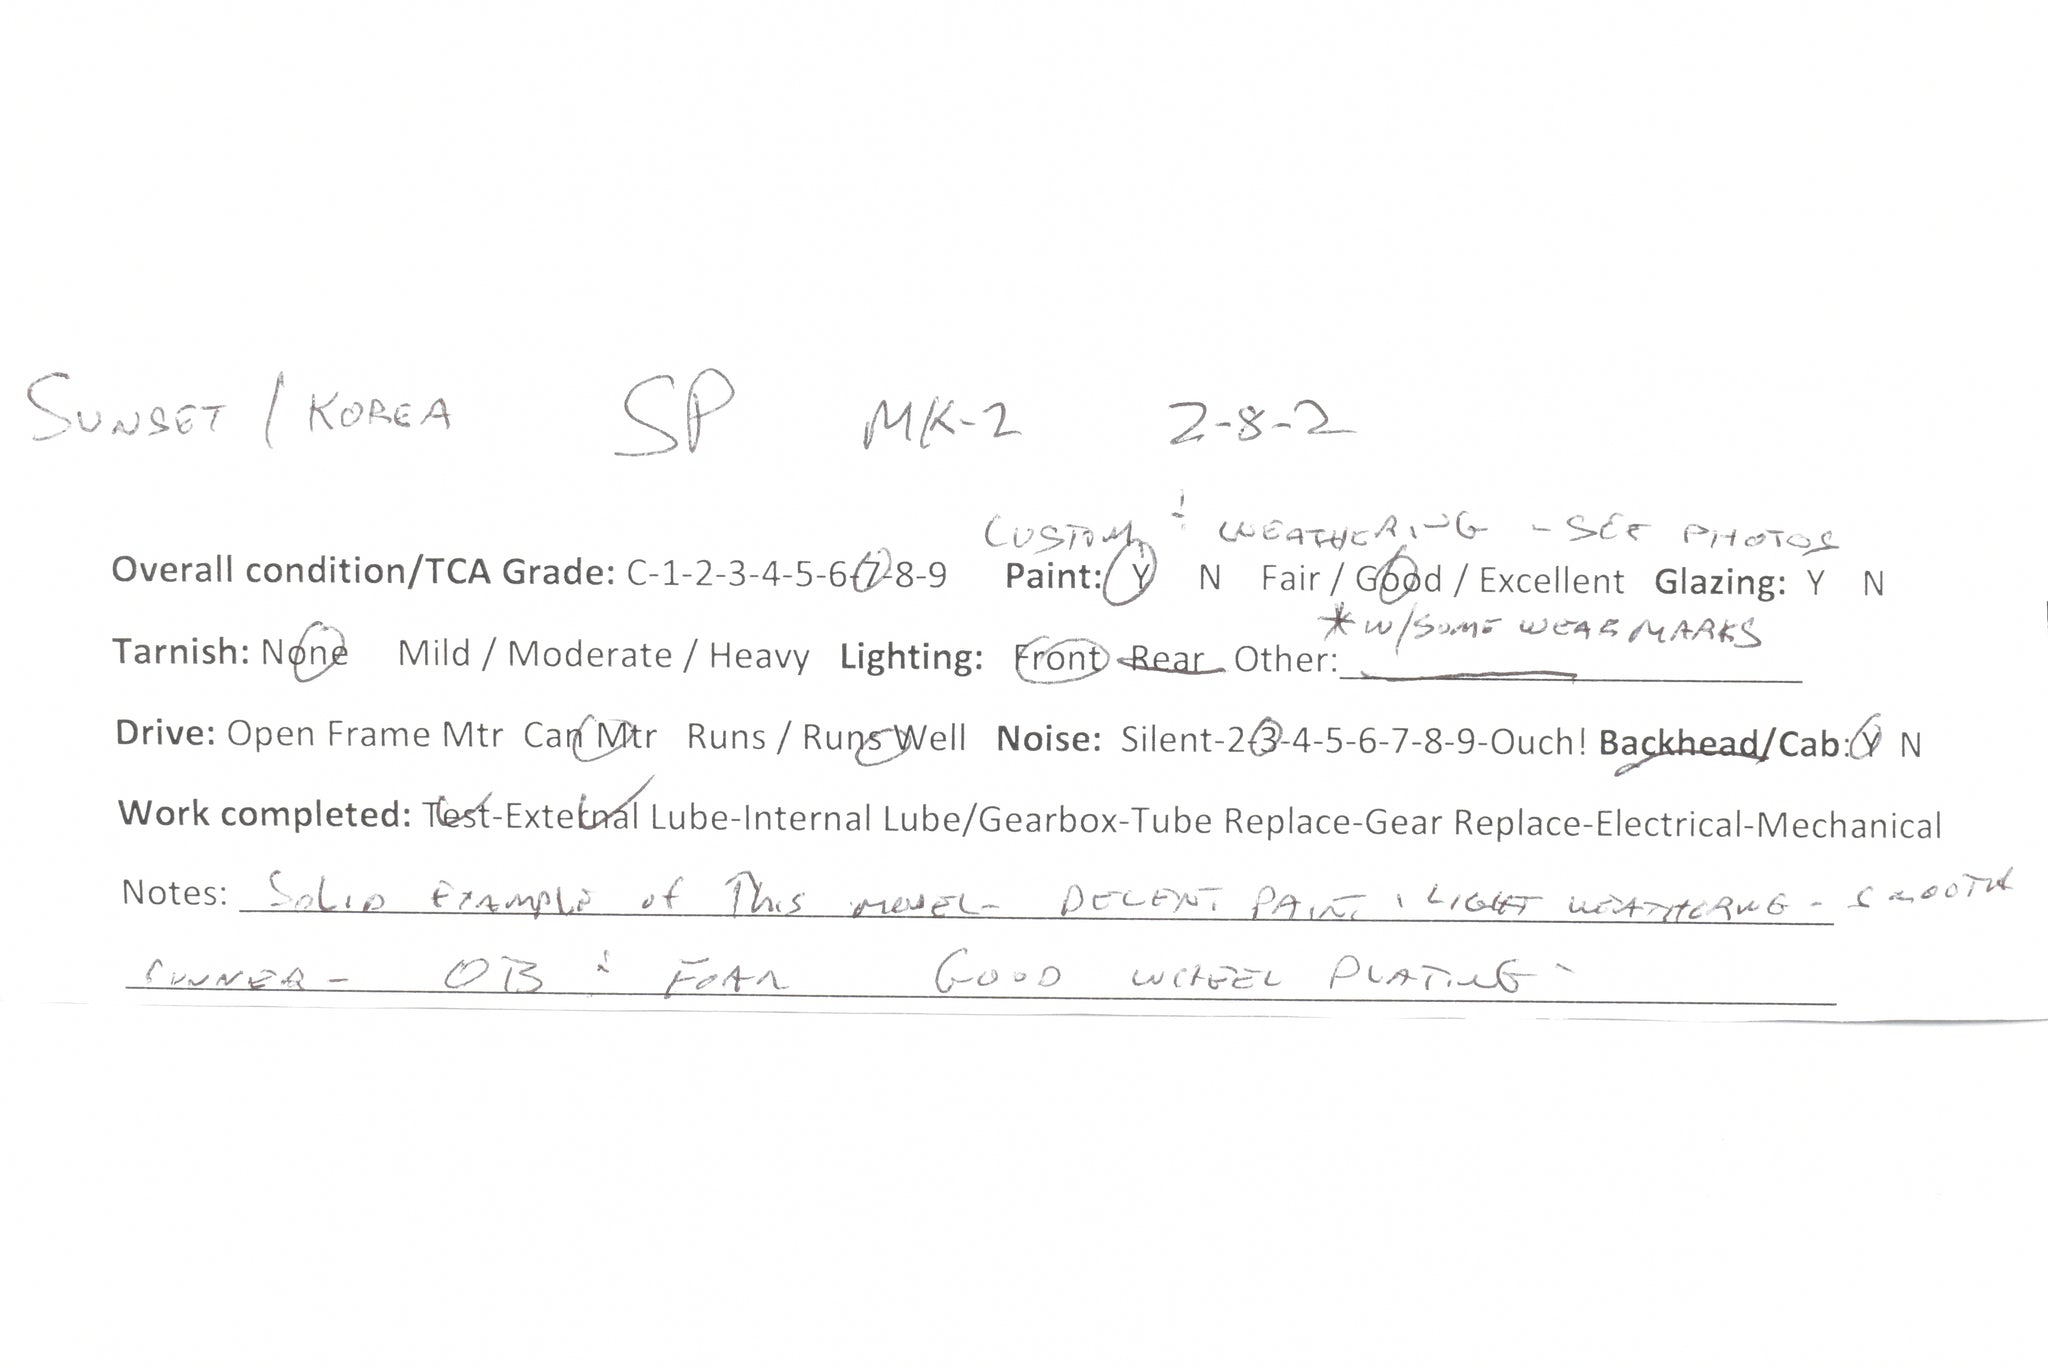 SUNSET / KOREA SP MK-2 2-8-2
CUSTOM & WEATHERING - SEE PHOTOS
Overall condition/TCA Grade: C-1-2-3-4-5-6-7-8-9 Paint: Y N Fair / Good / Excellent Glazing: Y N
*W/SOME WEAR MARKS
Tarnish: None Mild / Moderate / Heavy Lighting: Front Rear Other:
Drive: Open Frame Mtr Can Mtr Runs / Runs Well Noise: Silent-2-3-4-5-6-7-8-9-Ouch! Backhead/Cab: Y N
Work completed: Test-External Lube-Internal Lube/Gearbox-Tube Replace-Gear Replace-Electrical-Mechanical
Notes: SOLID EXAMPLE of This MODEL- DECENT PAINT & LIGHT WEATHERING - SMOOTH
RUNNER - OB & FOAM GOOD WHEEL PLATING -